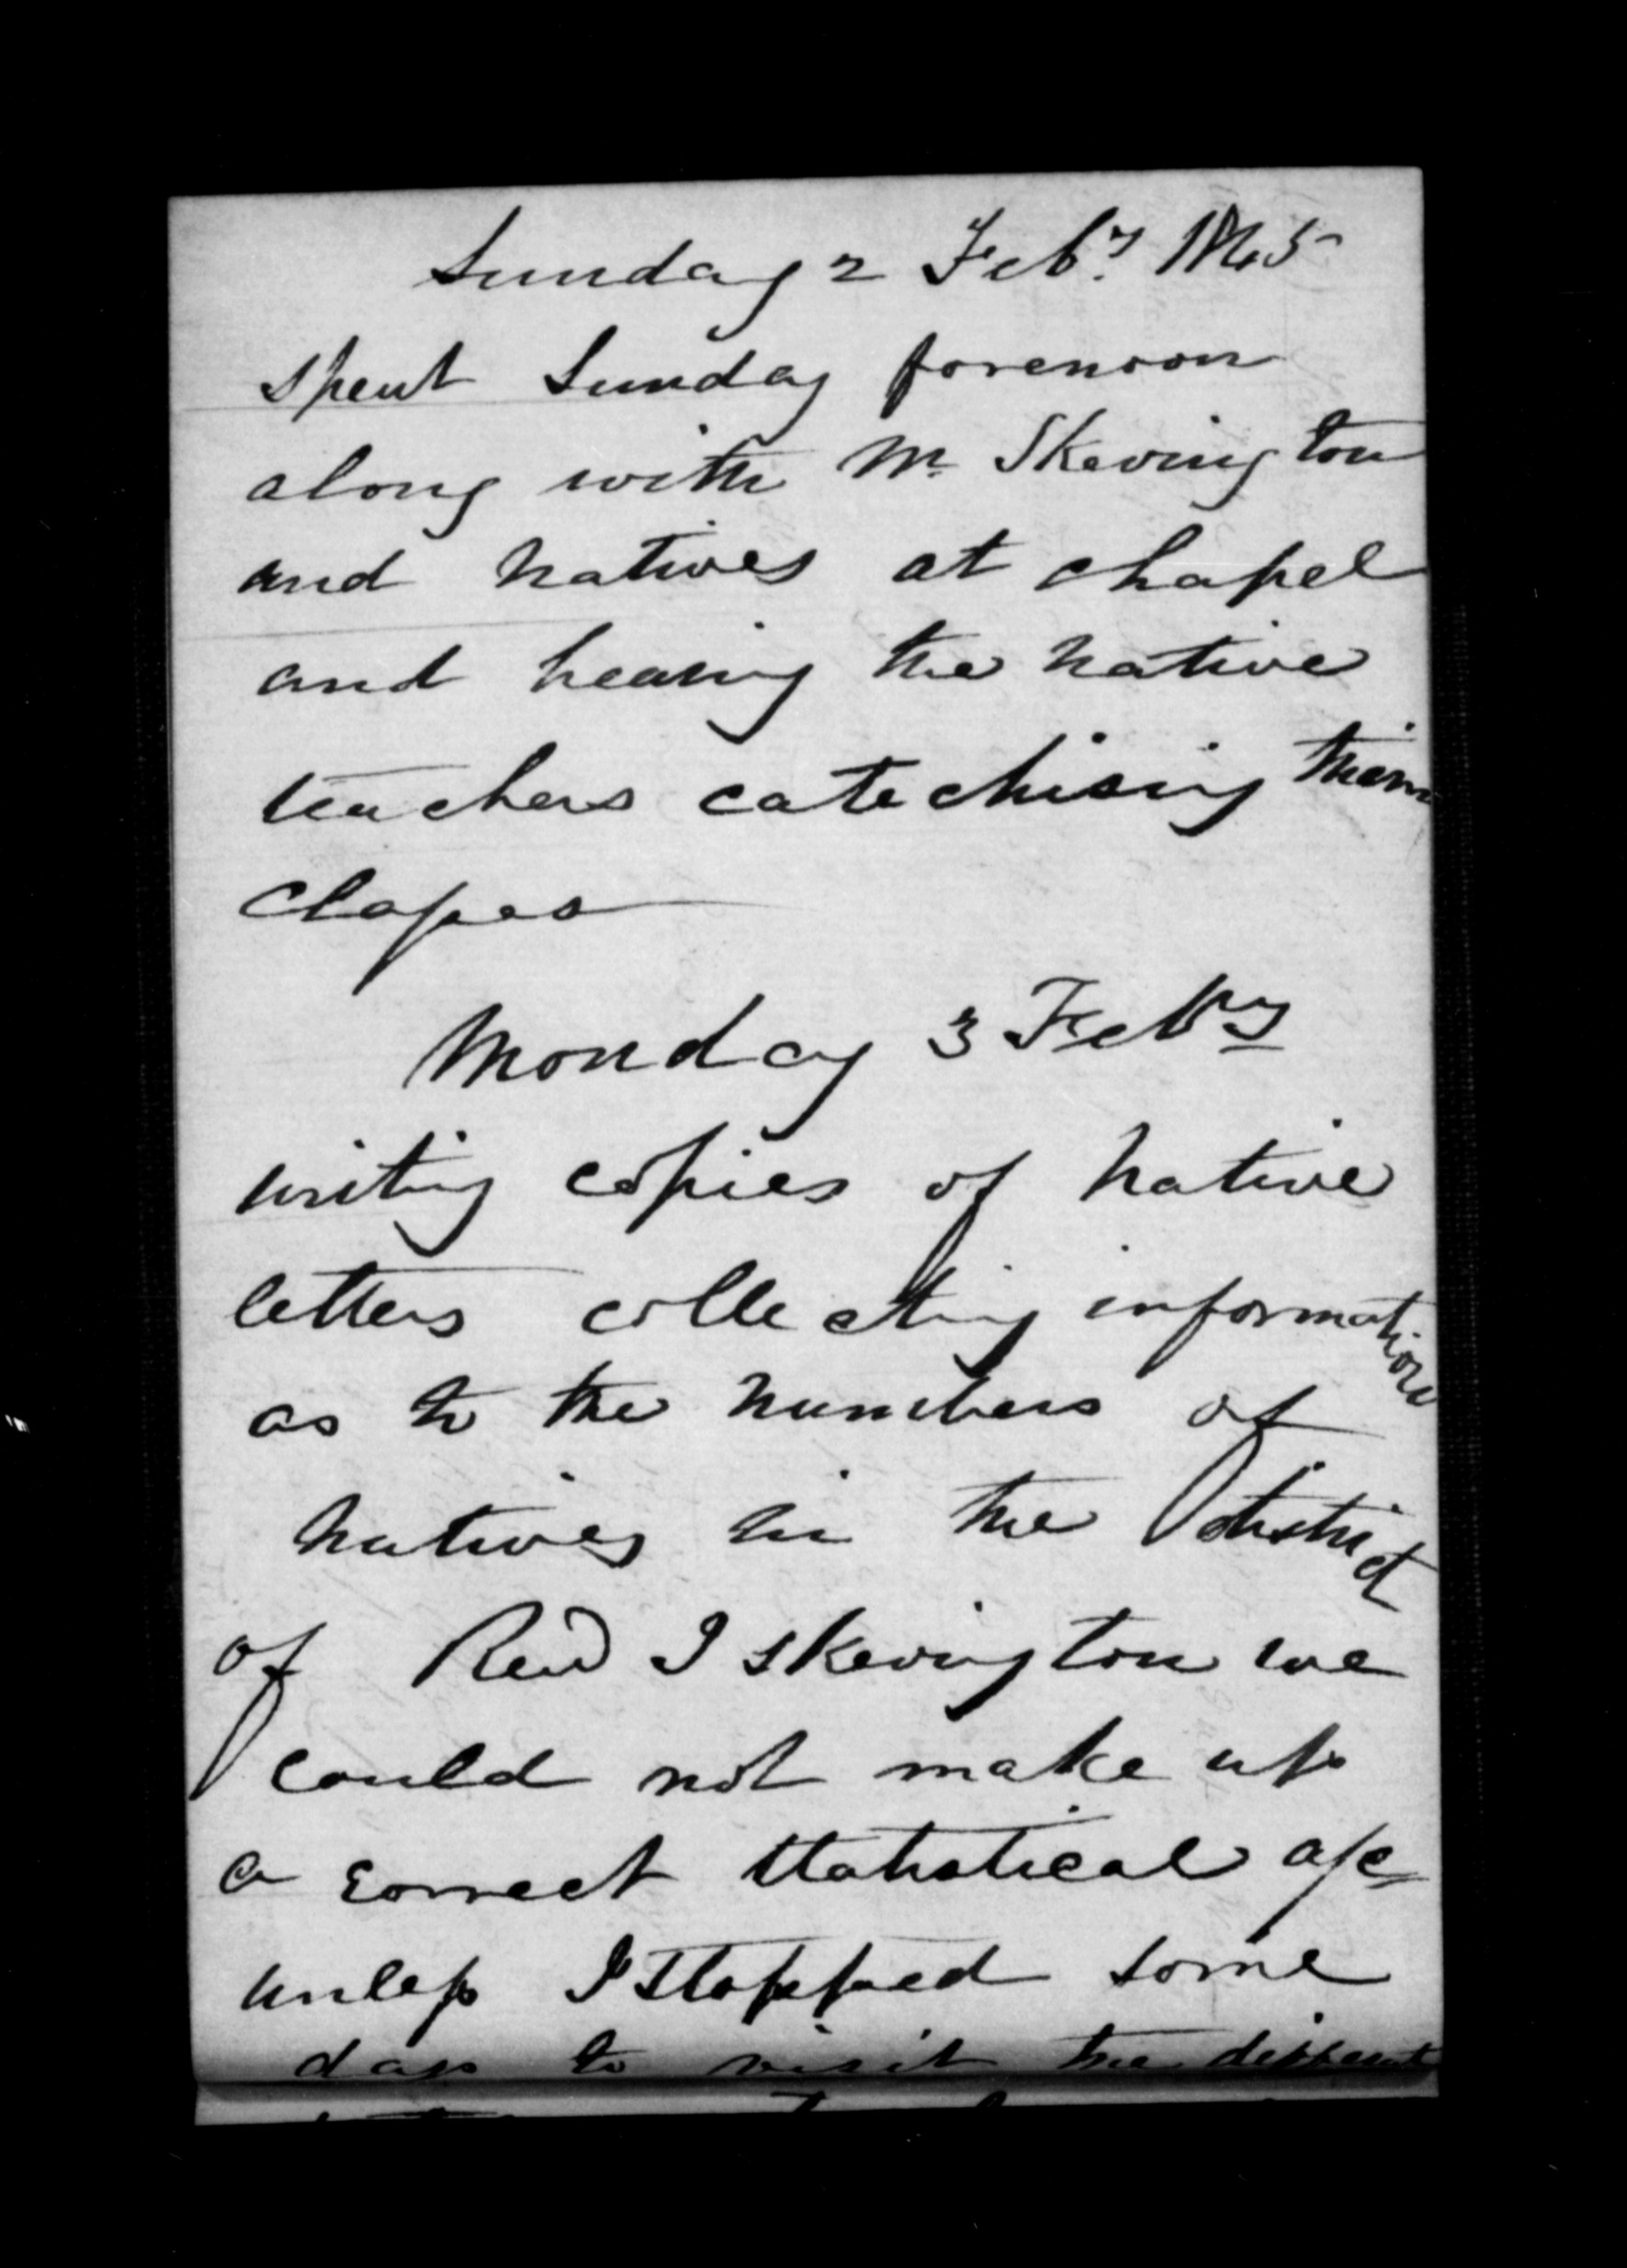 Sunday 2 Feby. 1845
spent Sunday forenoon
along with Mr. Skevington
and natives at chapel
and hearing the native
teachers catechising their
classes
Monday 3 Feby
writing copies of native
letters collecting information
as to the numbers of
natives in the district
of Revd J Skevington we
could not make up
a correct statistical a/c
unless I stopped some
days to visit the different